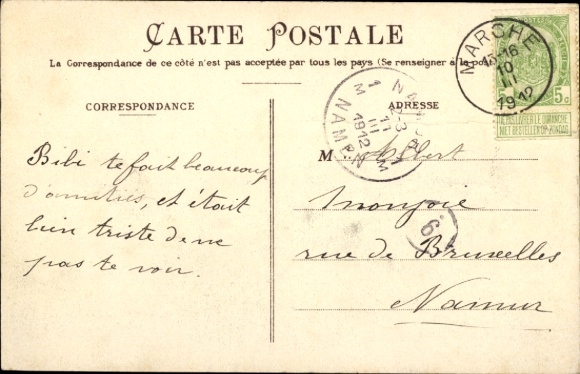 CARTE POSTALE
La Correspondance de ce côté n'est pas acceptée par tous les pays (Se renseigner à la pos
CORRESPONDANCE
ADRESSE
Bibi te fait beaucoup
d'amitiés, et était
bien triste de ne
pas te voir.
M Albert
Monjoie
rue de Bruxelles
Namur
MARCHE
15-16
10
III
1912
5c 5c
NE PAS LIVRER LE DIMANCHE
NIET BESTELLEN OP ZONDAG
NAMUR
11
III
1912
NAMEN
6